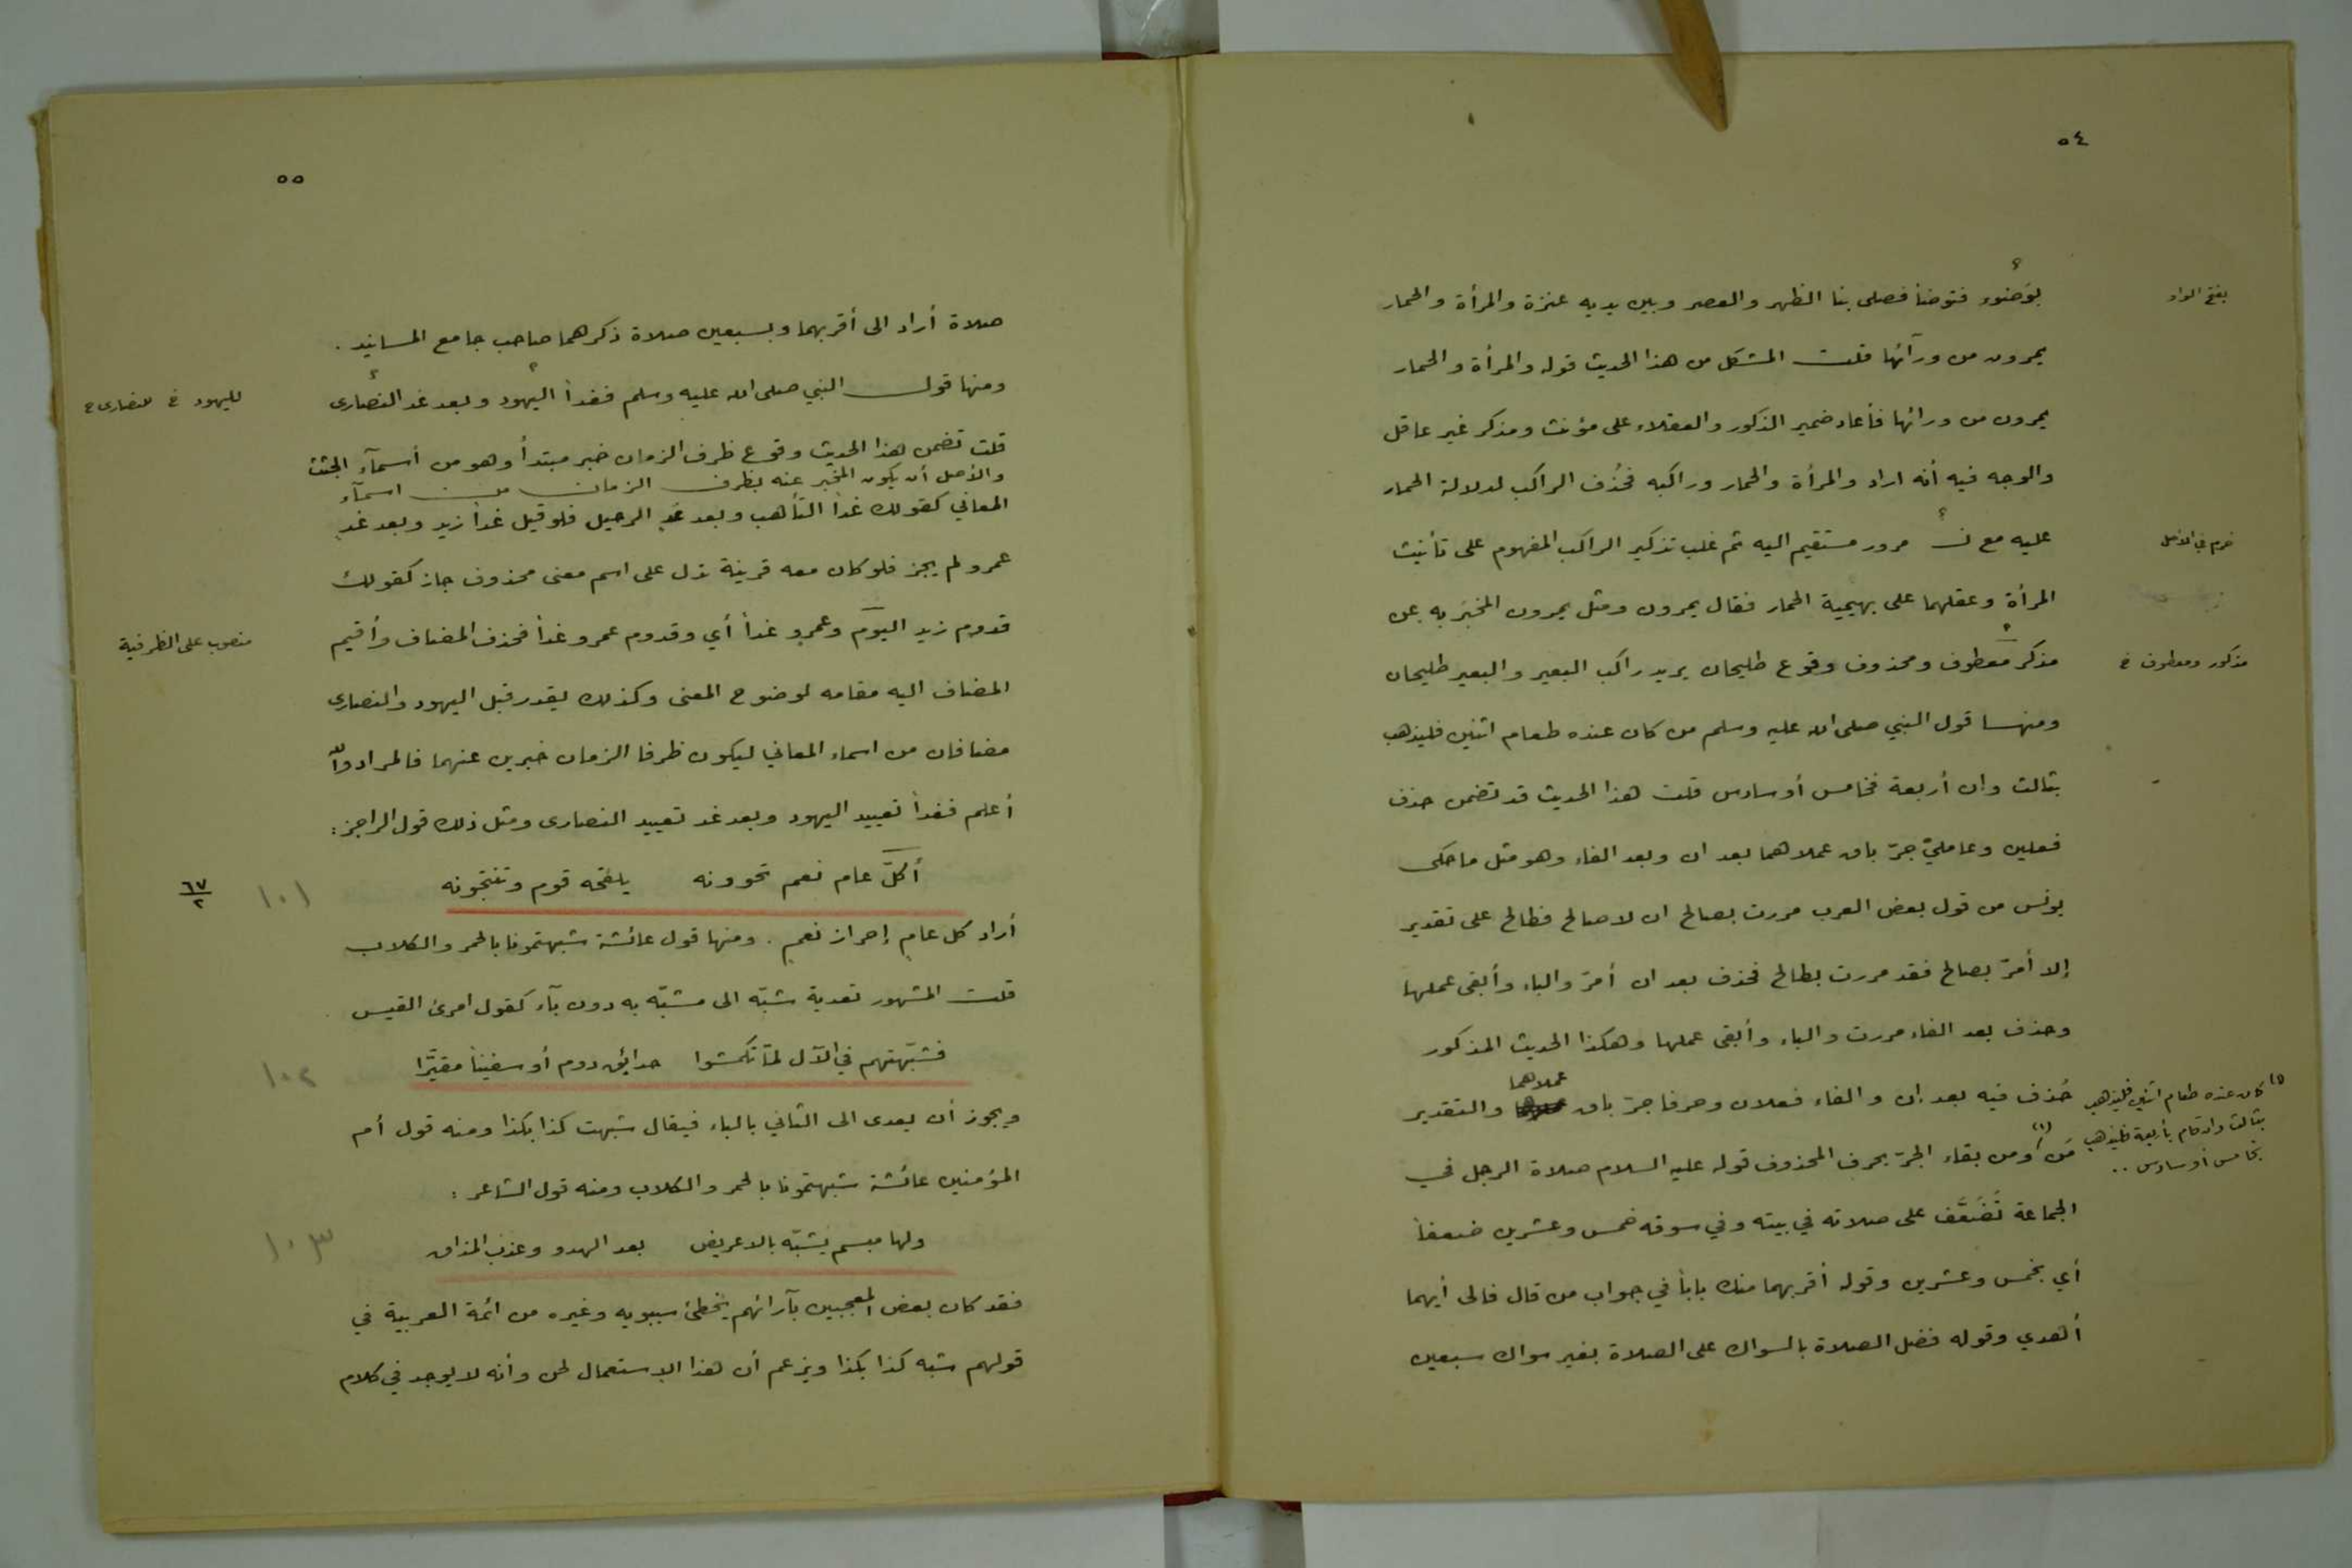 ٥٤
بوَضوء فتوضأ فصلى بنا الظهر والعصر وبين يديه عنزة والمرأة والحمار
بفتح الواو
يمرون من ورآئها قلت المشكل من هذا الحديث قوله والمرأة والحمار
يمرون من ورائها فأعاد ضمير الذكور والعقلاء على مؤنث ومذكر غير عاقل
والوجه فيه أنه اراد والمرأة والحمار وراكبه فحُذف الراكب لدلالة الحمار
عليه مع نسـ مرور مستقيم اليه ثم غلب تذكير الراكب المفهوم على تأنيث
خرم في الأصل
المرأة وعقلهما على بهيمية الحمار فقال يمرون ومثل يمرون المخبَر به عن
مذكر معطوف ومحذوف وقوع طليحان يريد راكب البعير والبعير طليحان
مذكور ومعطوف خ
ومنها قول النبي صلى الله عليه وسلم من كان عنده طعام اثنين فليذهب
بثالث وان أربعة فخامس أو سادس قلت هذا الحديث قد تضمن حذف
فعلين وعامليْ جرّ باق عملاهما بعد ان وبعد الفاء وهو مثل ما حكى
يونس من قول بعض العرب مررت بصالح ان لا صالح فطالح على تقدير
إلا أمرّ بصالح فقد مررت بطالح فحذف بعد ان أمرّ والباء وأبقى عملها
وحذف بعد الفاء مررت والباء وأبقى عملها وهكذا الحديث المذكور
حُذف فيه بعد إن والفاء فعلان وحرفا جرّ باق عملاهما والتقدير
مَن (١) ومن بقاء الجرّ بحرف المحذوف قوله عليه السلام صلاة الرجل في
(١) كان عنده طعام اثنين فليذهب
بثالث وان قام بأربعة فليذهب
بخامس أو سادس ..
الجماعة تُضَعَّف على صلاته في بيته وفي سوقه خمس وعشرين ضعفاً
أي بخمس وعشرين وقوله أقربهما منك باباً في جواب من قال فالى أيهما
أهدي وقوله فضل الصلاة بالسواك على الصلاة بغير سواك سبعين
٥٥
صلاة أراد الى أقربهما وبسبعين صلاة ذكرهما صاحب جامع المسانيد .
ومنها قول النبي صلى الله عليه وسلم فغداً اليهود وبعد غد النصارى
لليهود خ للنصارى خ
قلت تضمن هذا الحديث وقوع ظرف الزمان خبر مبتدأ وهو من أسمآء الجثث
والأصل أن يكون المخبر عنه بظرف الزمان من اسمآء
المعاني كقولك غداً التأهب وبعد غدٍ الرحيل فلو قيل غداً زيد وبعد غدٍ
عمرو لم يجز فلو كان معه قرينة تدل على اسم معنى محذوف جاز كقولك
قدوم زيد اليوم وعمرو غداً أي وقدوم عمرو غداً فحذف المضاف وأقيم
منصوب على الظرفية
المضاف اليه مقامه لوضوح المعنى وكذلك يقدر قبل اليهود والنصارى
مضافان من اسماء المعاني ليكون ظرفا الزمان خبرين عنهما فالمراد والله
أعلم فغداً تعييد اليهود وبعد غد تعييد النصارى ومثل ذلك قول الراجز :
أكلّ عام نعم تحوونه يلقحه قوم وتنتجونه
١٠١
٦٧
٢
أراد كل عامٍ إحراز نعمٍ . ومنها قول عائشة شبهتمونا بالحمر والكلاب
قلت المشهور تعدية شبّه الى مشبّه به دون بآء كقول امرئ القيس
فشبّهتهم في الآل لمّا تكمشوا حدائق دوم أو سفيناً مقيّرا
١٠٢
ويجوز أن يعدى الى الثاني بالباء فيقال شبهت كذا بكذا ومنه قول أم
المؤمنين عائشة شبهتمونا بالحمر والكلاب ومنه قول الشاعر :
ولها مبسم يُشبّه بالاغريض بعد الهدو وعذب المذاق
١٠٣
فقد كان بعض المعجبين بآرائهم يخطئ سيبويه وغيره من ائمة العربية في
قولهم شبه كذا بكذا ويزعم أن هذا الاستعمال لحن وأنه لا يوجد في كلام